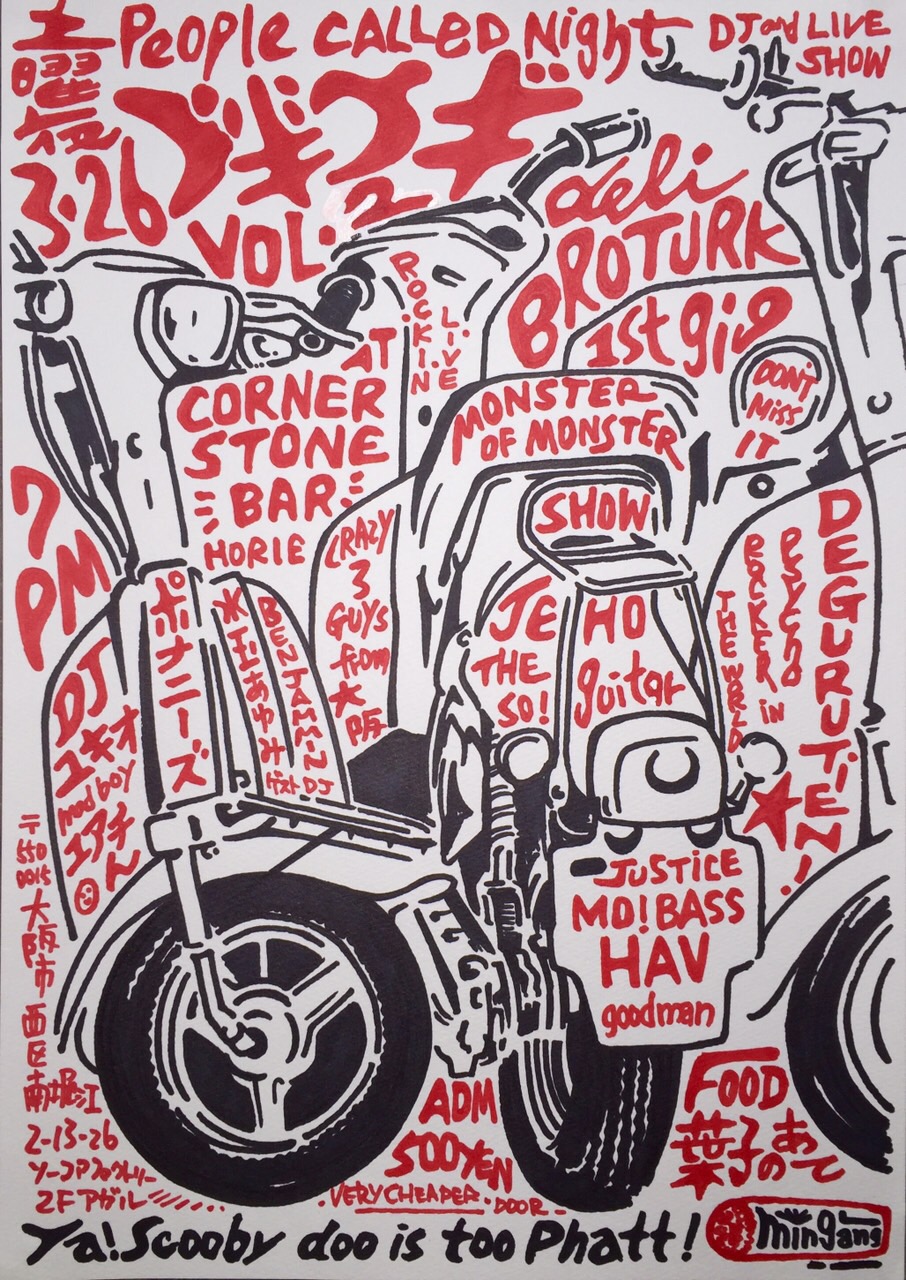 土曜夜
3.26
People CALLED Night
DJ and LIVE SHOW
ブギウギ
VOL.2
deli
BROTURK
1st gig
DON'T MISS IT
ROCKIN LIVE
AT
CORNER
STONE
BAR
HORIE
MONSTER
OF MONSTER
SHOW
7
PM
CRAZY
3
GUYS
from
大阪
JE
THE
SO!
HO
guitar
DEGURUTiEN!
PSYCHO
ROCKER in
THE WORLD
ポナニーズ
水玉あゆみ
BENJAMMIN
ゲストDJ
DJ
ユキオ
mod boy
エアチん
JUSTICE
MD! BASS
HAV
goodman
〒550
0015
大阪市西区南堀江
2-13-26
2F アガル
ADM
500YEN
VERY CHEAPER
DOOR
FOOD
葉子のあて
Ya! Scooby doo is too Phatt!
mingang